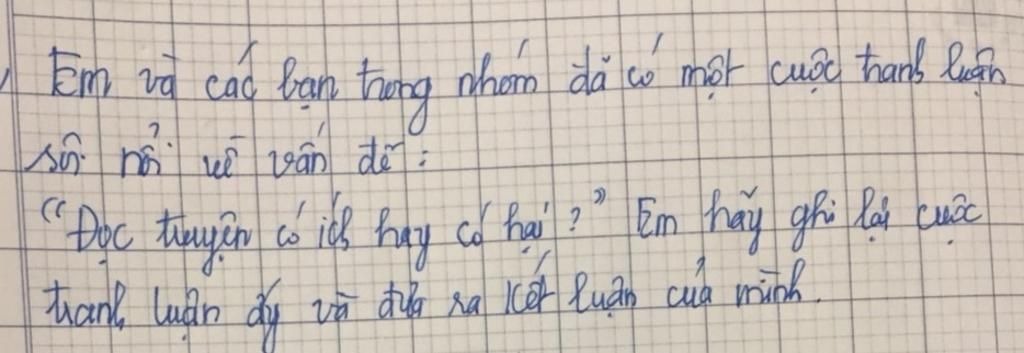 Em và các bạn trong nhóm đã có một cuộc tranh luận
sôi nổi về vấn đề :
"Đọc truyện có ích hay có hại ?" Em hãy ghi lại cuộc
tranh luận ấy và đưa ra kết luận của mình.